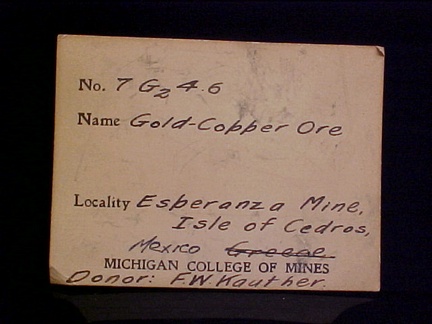 No. 7 G2 4.6
Name Gold-Copper Ore
Locality Esperanza Mine,
Isle of Cedros,
Mexico Greece
MICHIGAN COLLEGE OF MINES
Donor: F.W. Kauther.